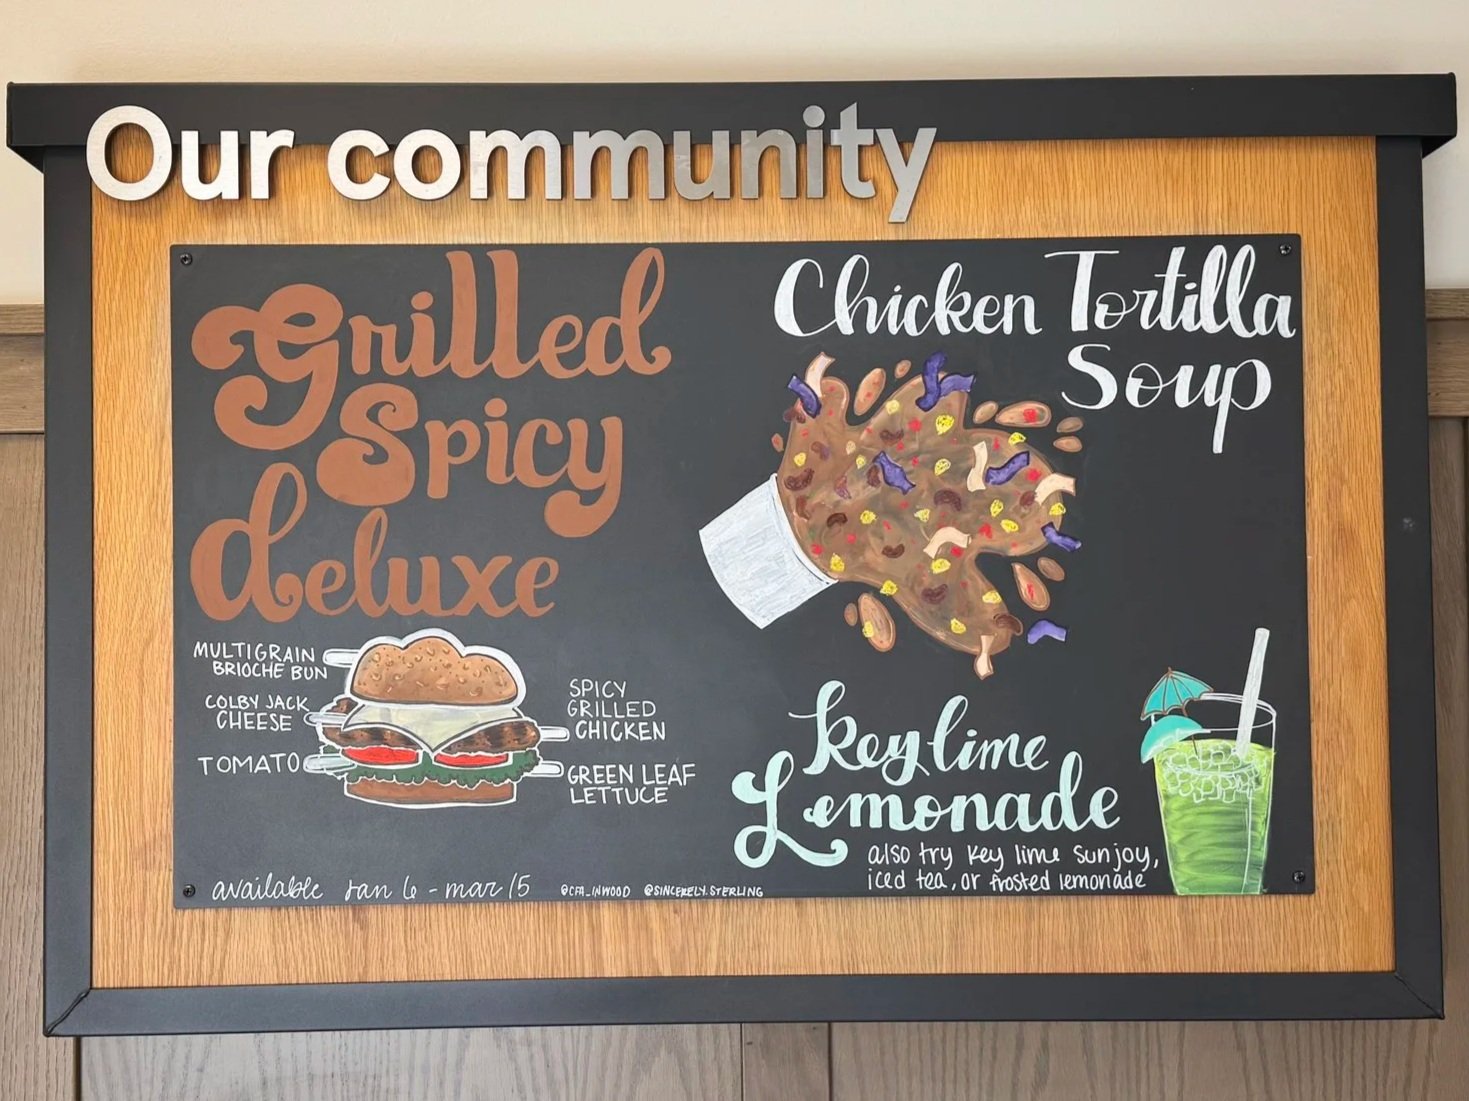 Our community
Grilled
Spicy
deluxe
MULTIGRAIN
BRIOCHE BUN
COLBY JACK
CHEESE
TOMATO
SPICY
GRILLED
CHICKEN
GREEN LEAF
LETTUCE
available Jan 6 - mar 15
@CFA_INWOOD @SINCERELY.STERLING
Chicken Tortilla
Soup
key lime
Lemonade
also try key lime sunjoy,
iced tea, or frosted lemonade